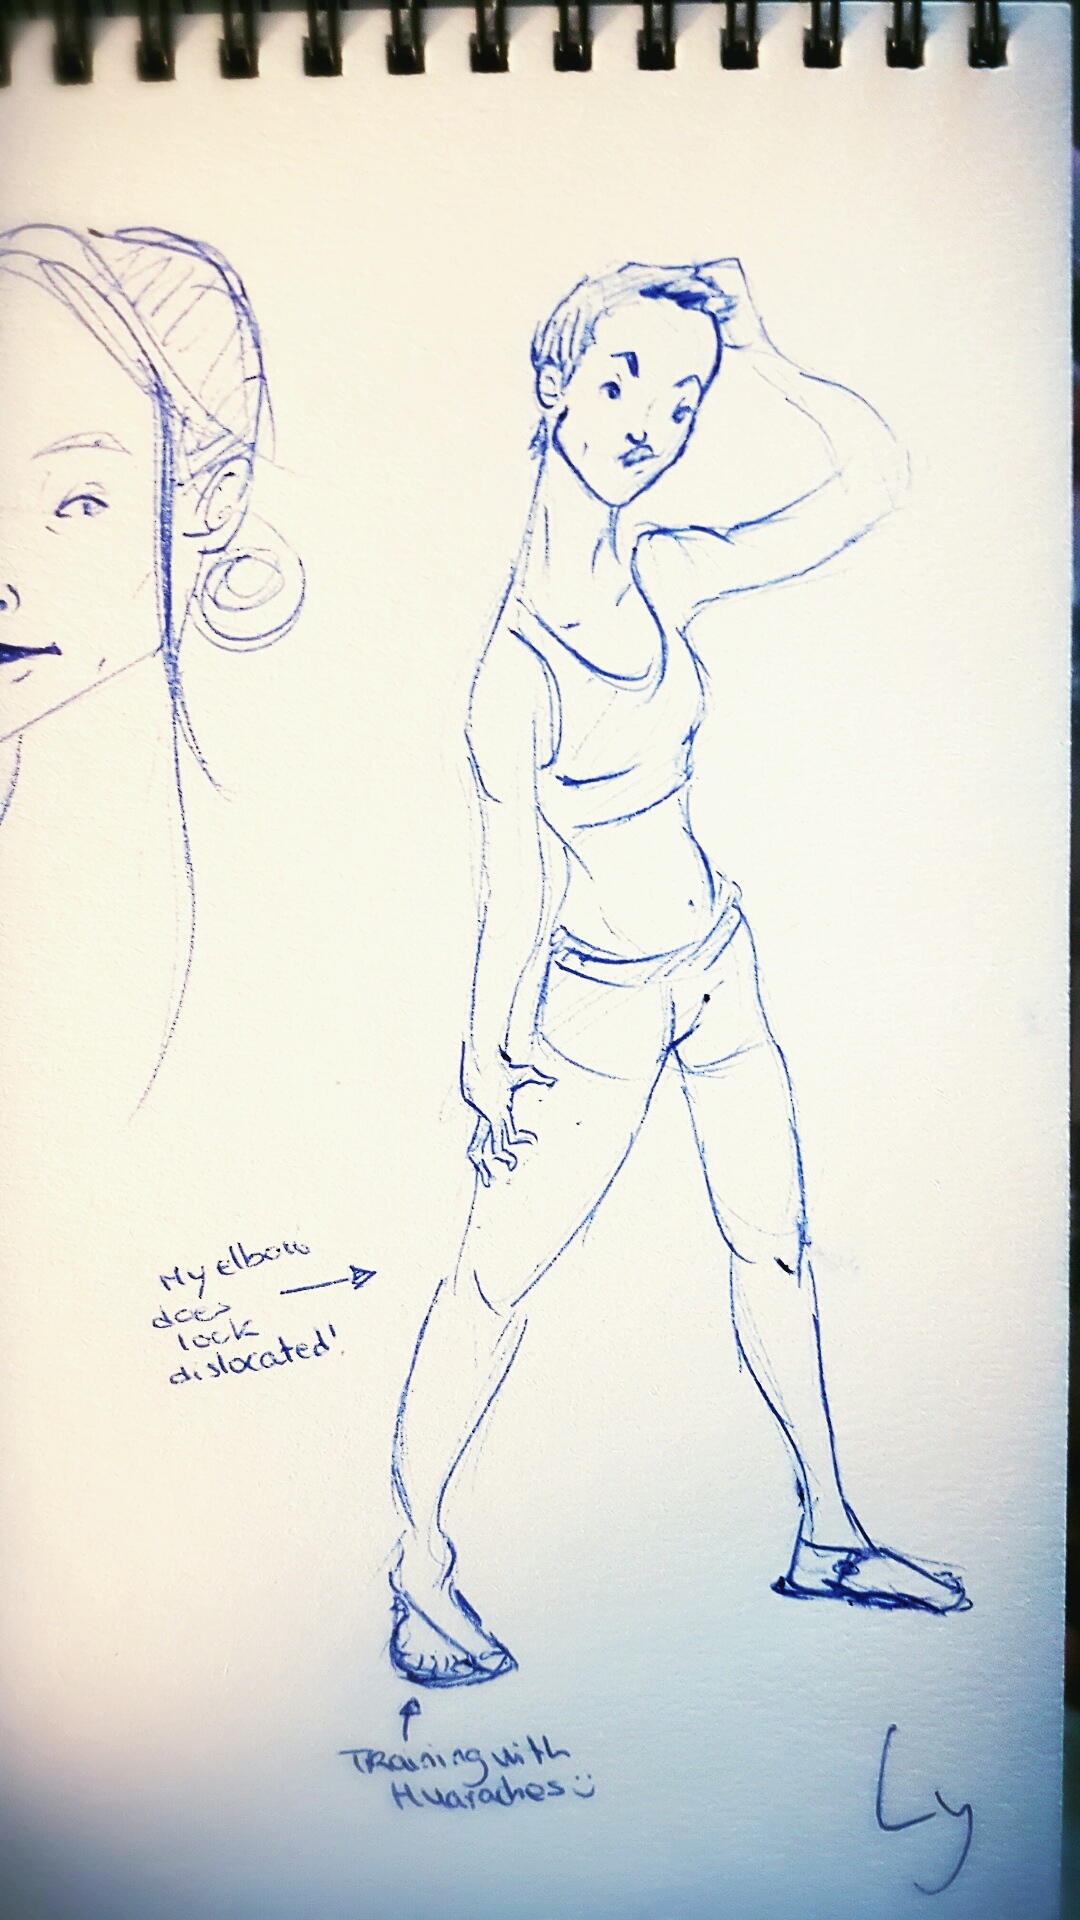 My elbow
does
look
dislocated!
Training with
Huaraches
Ly